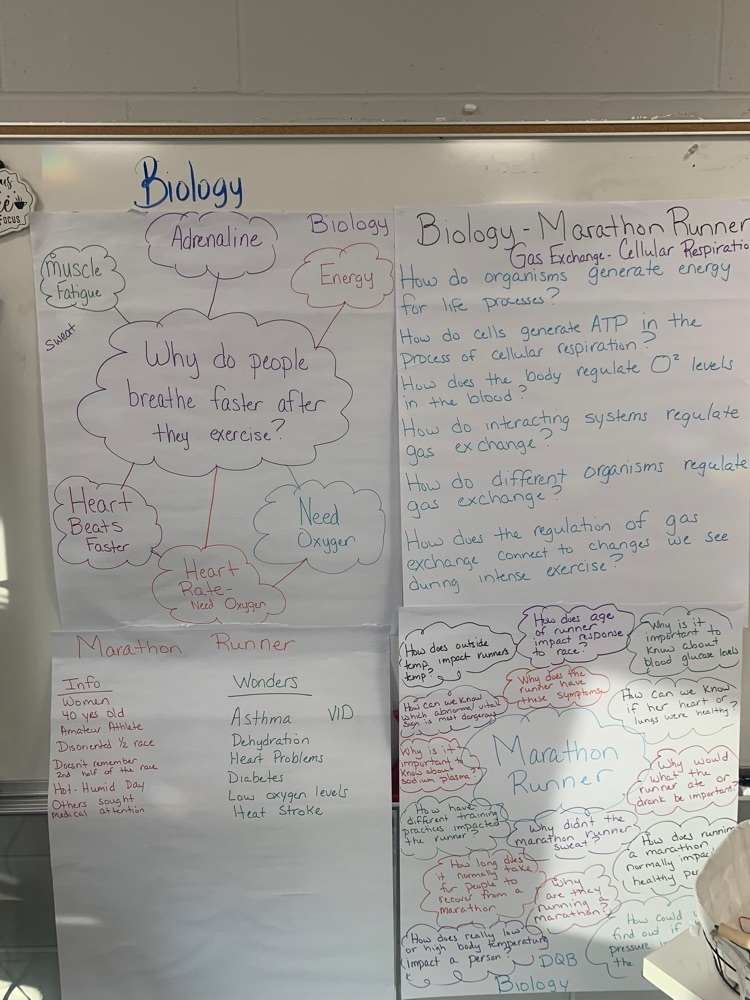 Biology
Focus
Biology
Adrenaline
Muscle
Fatigue
Energy
sweat
Why do people
breathe faster after
they exercise?
Heart
Beats
Faster
Need
Oxygen
Heart
Rate-
Need Oxygen
Biology - Marathon Runner
Gas Exchange - Cellular Respiratio
How do organisms generate energy
for life processes?
How do cells generate ATP in the
process of cellular respiration?
How does the body regulate O² levels
in the blood?
How do interacting systems regulate
gas exchange?
How do different organisms regulate
gas exchange?
How does the regulation of gas
exchange connect to changes we see
during intense exercise?
Marathon Runner
Info
Women
40 yrs old
Amateur Athlete
Disoriented ½ race
Doesn't remember
2nd half of the race
Hot. Humid Day
Others sought
medical attention
Wonders
Asthma VID
Dehydration
Heart Problems
Diabetes
Low oxygen levels
Heat Stroke
How does outside
temp impact runners
temp?
How does age
of runner
impact response
to race?
Why is it
important to
know about
blood glucose levels
How can we know
which abnormal vital
sign is most dangerous
Why does the
runner have
these symptoms
How can we know
if her heart or
lungs were healthy?
Why is it
important to
know about
sodium plasma?
Marathon
Runner
Why would
what the
runner ate or
drank be important?
How have
different training
practices impacted
the runner?
Why didn't the
marathon runner
sweat?
How does runnin
a marathon
normally impac
healthy per
How long does
it normally take
for people to
recover from a
marathon
Why
are they
running a
marathon?
How does really low
or high body temperature
impact a person?
How could
find out if
pressure
the
DQB
Biology